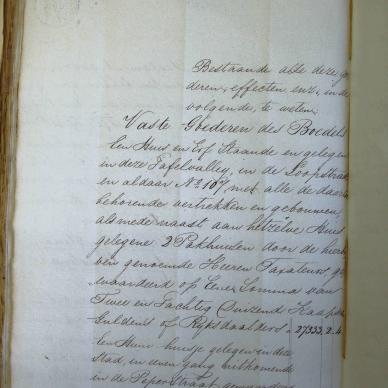 Bestaande alle deze goe
deren, effecten enz., in de
volgende, te weten,
Vaste Goederen des Boedels
Een Huis en Erf Staande en gelegen
in deze Tafelvalley, in de Loopstraat
en aldaar No 107, met alle de daarin
behorende vertrekken en gebouwen,
alsmede naast aan hetzelve Huis
gelegene 2 Pakhuizen door de hierbo
ven genoemde Heeren Taxateurs ge
waardeerd op Eene Somma van
Twee en Tachtig Duizend Kaapsche
Guldens of Ryksdaalders 27333,2,4
Een Huis huisje gelegen in deze
Stad, in eenen gang uitkomende
in de Peperstraat